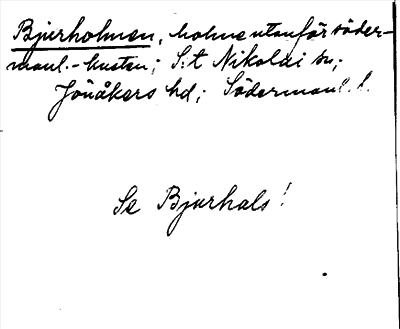 Bjurholmen, holme utanför söder-
manl.-kusten; S:t Nikolai sn;
Jönåkers hd; Södermanl. l.
Se Bjurhals!